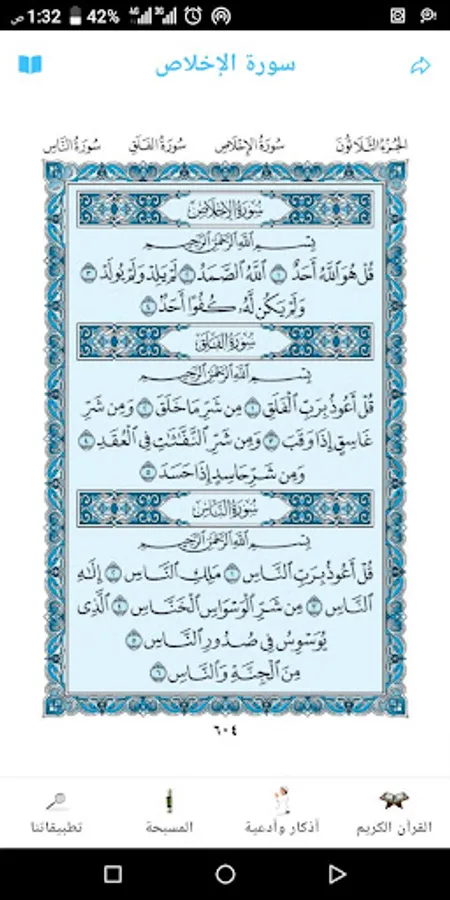 1:32 ص 42% 4G 3G
سورة الإخلاص
الجُزءُ الثَّلَاثُونَ سُورَةُ الإِخْلَاصِ سُورَةُ الفَلَقِ سُورَةُ النَّاسِ
سُورَةُ الإِخْلَاصِ
بِسْمِ اللَّهِ الرَّحْمَٰنِ الرَّحِيمِ
قُلْ هُوَ اللَّهُ أَحَدٌ ١ اللَّهُ الصَّمَدُ ٢ لَمْ يَلِدْ وَلَمْ يُولَدْ ٣
وَلَمْ يَكُن لَّهُۥ كُفُوًا أَحَدٌ ٤
سُورَةُ الفَلَقِ
بِسْمِ اللَّهِ الرَّحْمَٰنِ الرَّحِيمِ
قُلْ أَعُوذُ بِرَبِّ الْفَلَقِ ١ مِن شَرِّ مَا خَلَقَ ٢ وَمِن شَرِّ
غَاسِقٍ إِذَا وَقَبَ ٣ وَمِن شَرِّ النَّفَّاثَاتِ فِي الْعُقَدِ ٤
وَمِن شَرِّ حَاسِدٍ إِذَا حَسَدَ ٥
سُورَةُ النَّاسِ
بِسْمِ اللَّهِ الرَّحْمَٰنِ الرَّحِيمِ
قُلْ أَعُوذُ بِرَبِّ النَّاسِ ١ مَلِكِ النَّاسِ ٢ إِلَٰهِ
النَّاسِ ٣ مِن شَرِّ الْوَسْوَاسِ الْخَنَّاسِ ٤ الَّذِي
يُوَسْوِسُ فِي صُدُورِ النَّاسِ ٥
مِنَ الْجِنَّةِ وَالنَّاسِ ٦
٦٠٤
القرآن الكريم أذكار وأدعية المسبحة تطبيقاتنا